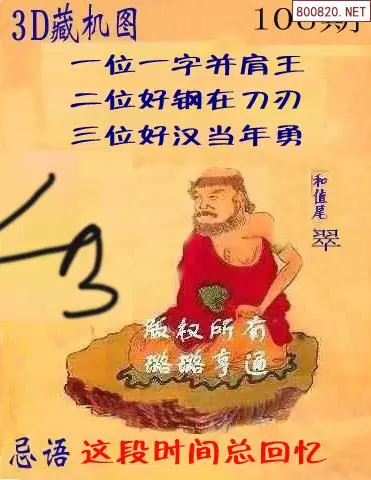 800820.NET
3D藏机图
一位一字并肩王
二位好钢在刀刃
三位好汉当年勇
和值尾
翠
版权所有
璐璐亨通
忌语 这段时间总回忆